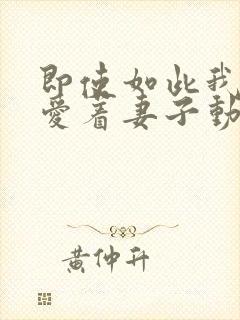 即使如此我
爱着妻子動
黄仲升